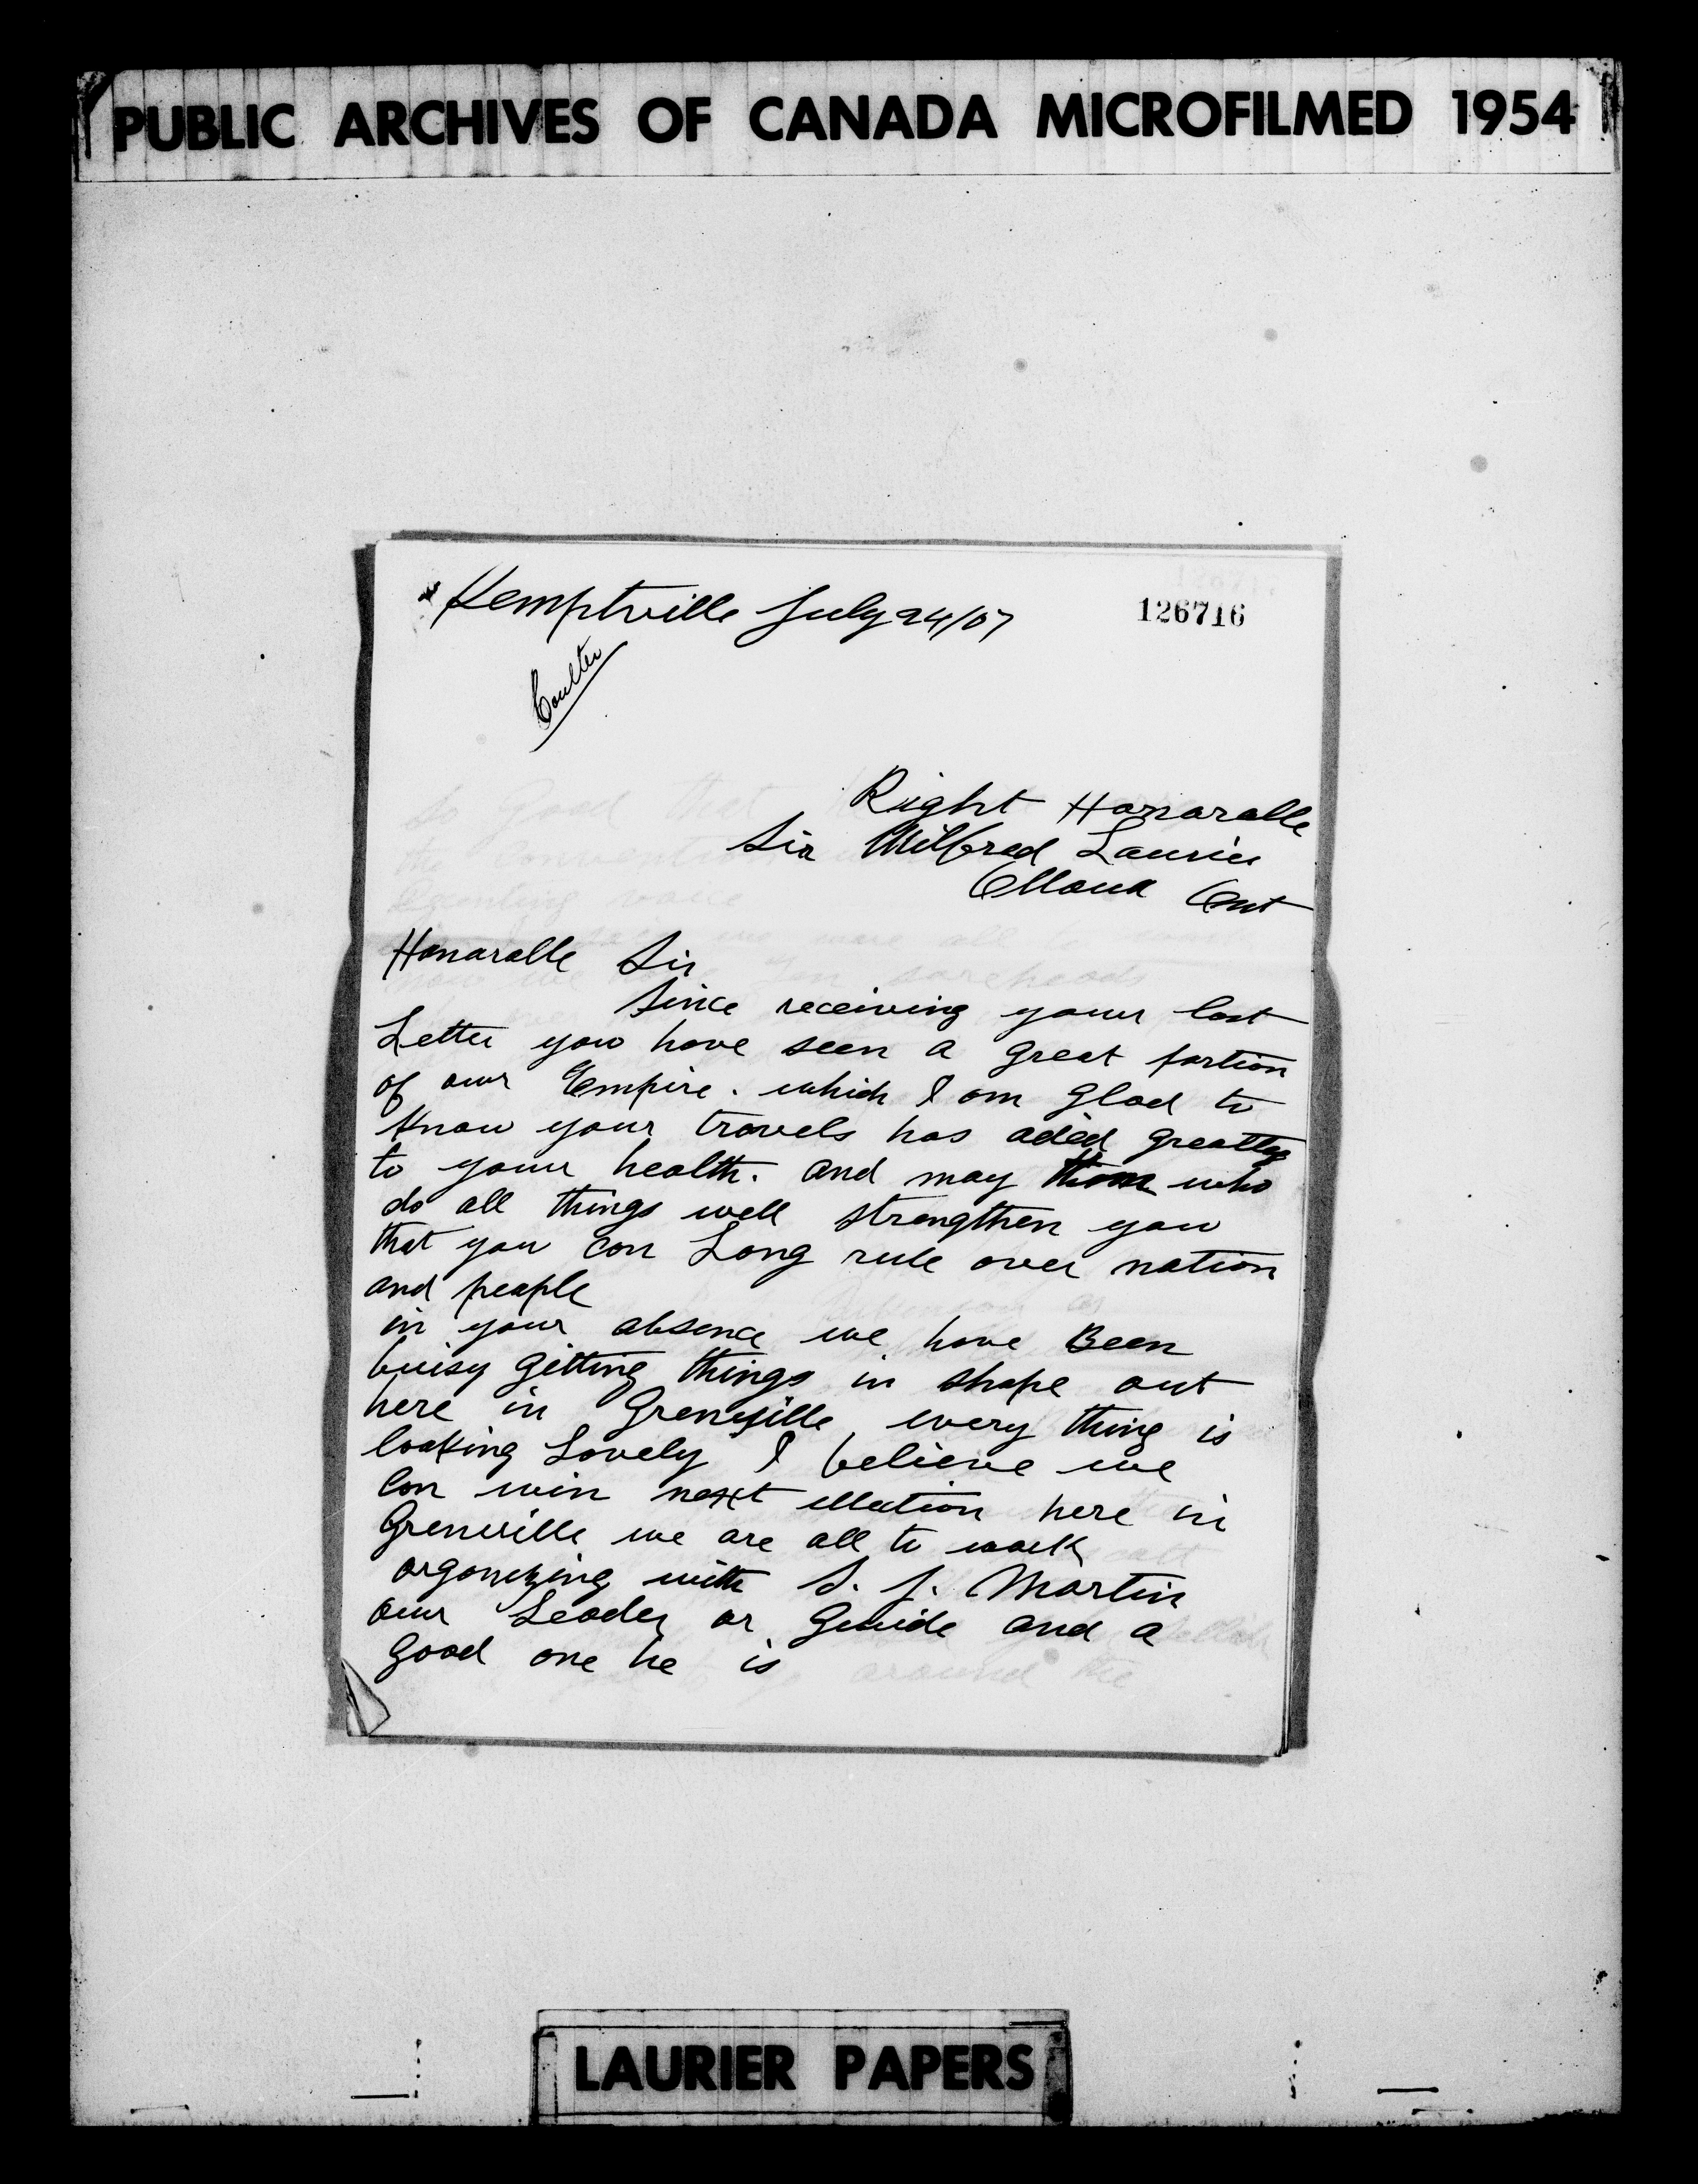 PUBLIC ARCHIVES OF CANADA MICROFILMED 1954
Kemptville July 24/07
126716
Coulter
Right Honaralle
Sir Wilfred Laurier
Ottawa Ont
Honaralle Sir
Since receiving your last
Letter you have seen a great portion
of our Empire. which I am glad to
know your travels has aded greatly
to your health. and may who
do all things well strengthen you
that you can Long rule over nation
and people
in your absence we have Been
buisy gitting things in shape out
here in Grenville every thing is
looking Lovely I believe we
Can win next ellection here in
Grenville we are all to work
organizing with S. J. Martin
our Leader or Guide and a
good one he is
LAURIER PAPERS